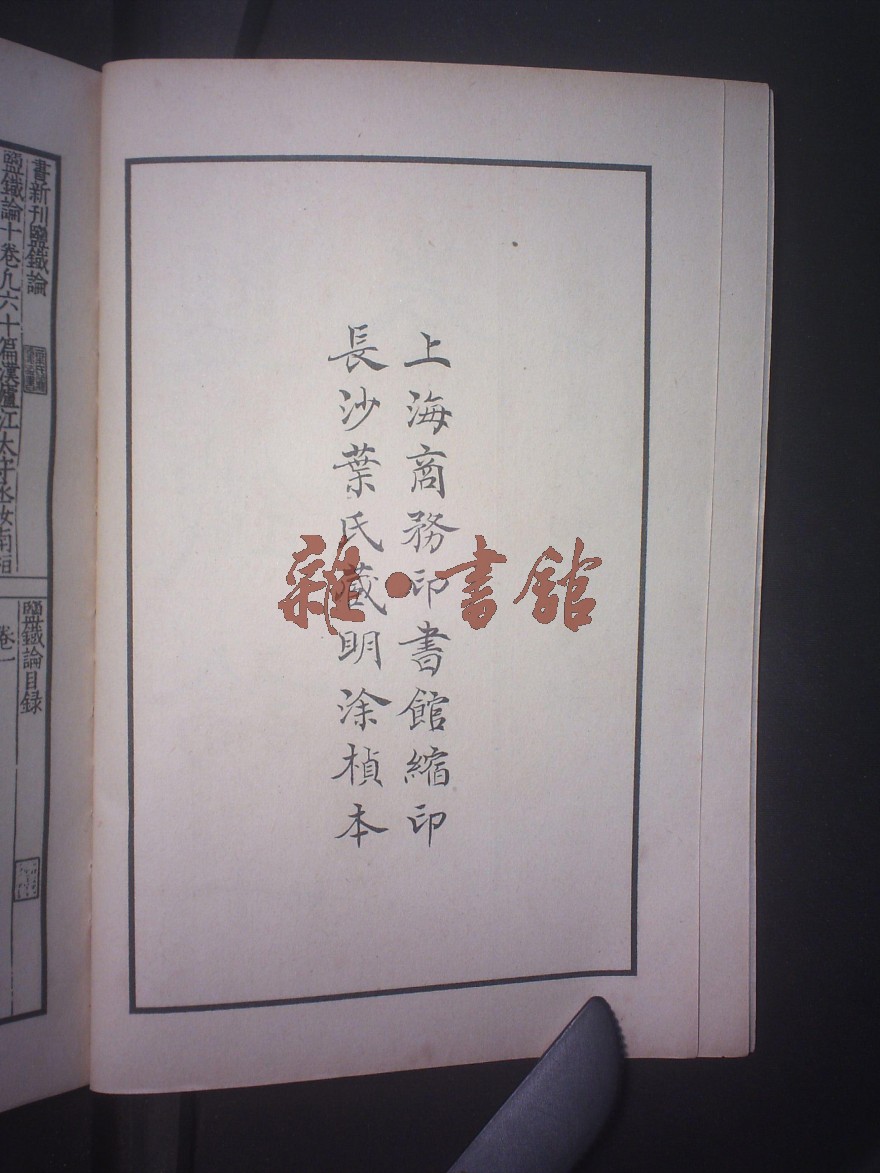 上海商務印書館縮印
長沙葉氏藏明涂楨本
雜·書館
書新刊鹽鐵論
鹽鐵論十卷凡六十篇漢廬江太守丞汝南桓
鹽鐵論目録
卷一